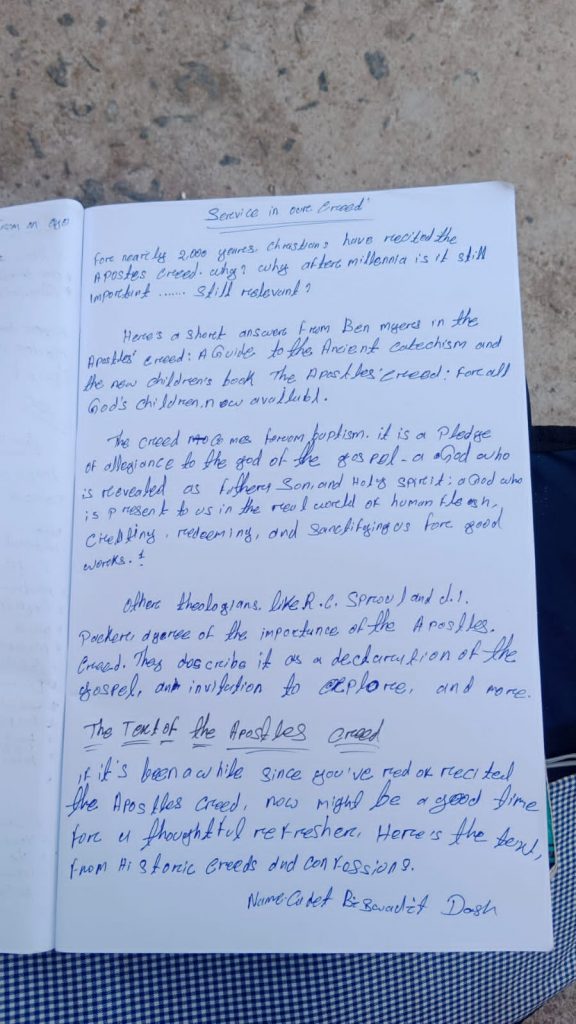 from an
Service in oure Creed'
fore nearely 2,000 yeares. christians have recited the
Apostes creed. why? why aftere millennia is it still
important ...... still relevant?
Here's a short answere from Ben myers in the
Apostles' creed: A Guide to the Ancient catechism and
the new children's book The Apostles' creed: foreall
God's children, now availabl.
The creed comes from baptism. it is a Pledge
of allegiance to the god of the gospel - a God who
is revealed as father, Son, and Holy spirit; a God who
is present to us in the real world of human flesh,
Creating, redeeming, and sanctifying us fore good
works. 1
Othere theologians. like R.C. Sproul and J.I.
Packere, agree of the importance of the Apostles.
Creed. They describe it as a declaration of the
gospel, an invitation to explore, and more.
The Text of the Apostles creed
if it's been a while since you've red or recited
the Apostles creed, now might be a good time
fore a thoughtful refresher, Here's the text,
from Historic creeds and confessions.
Name: Cadet Dash